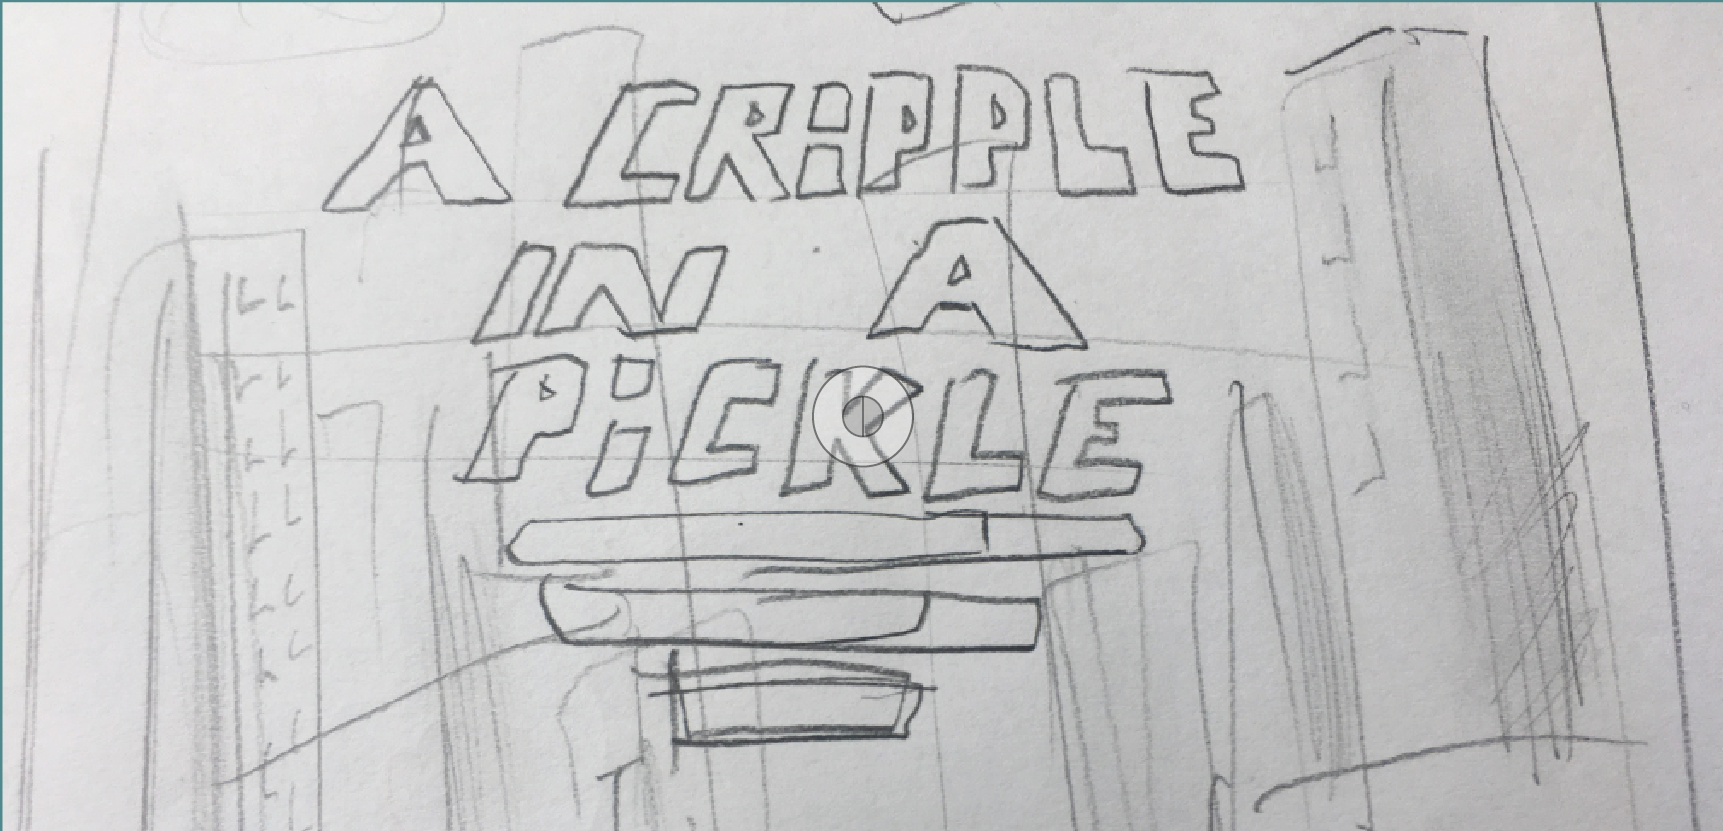 A CRiPPLE
IN A
PiCKLE